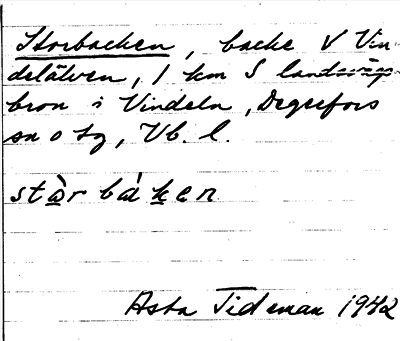 Storbacken, backe V Vin-
delälven, 1 km S landsvägs-
bron i Vindeln, Degerfors
sn o tg, Vb. l.
stὼr bàken
Asta Tideman 1942